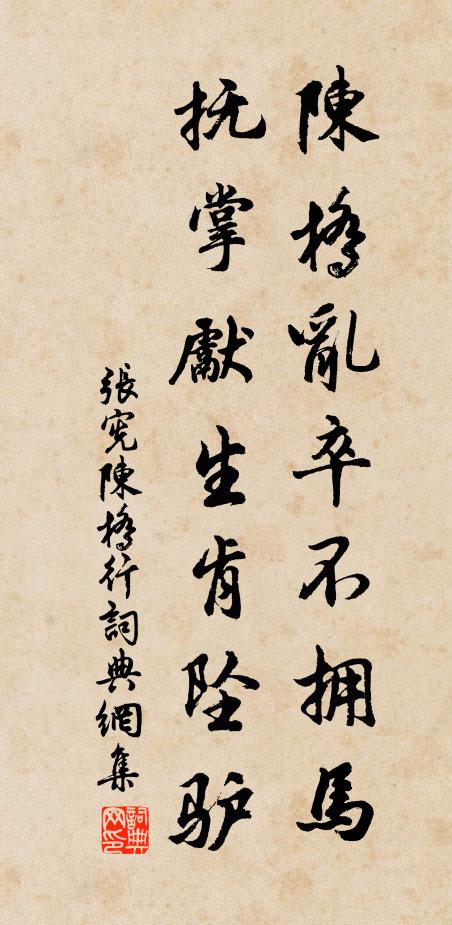 陳橋亂卒不拥馬
抚掌獻生肯坠驴
張宪陳橋行詞典網集
詞典网印